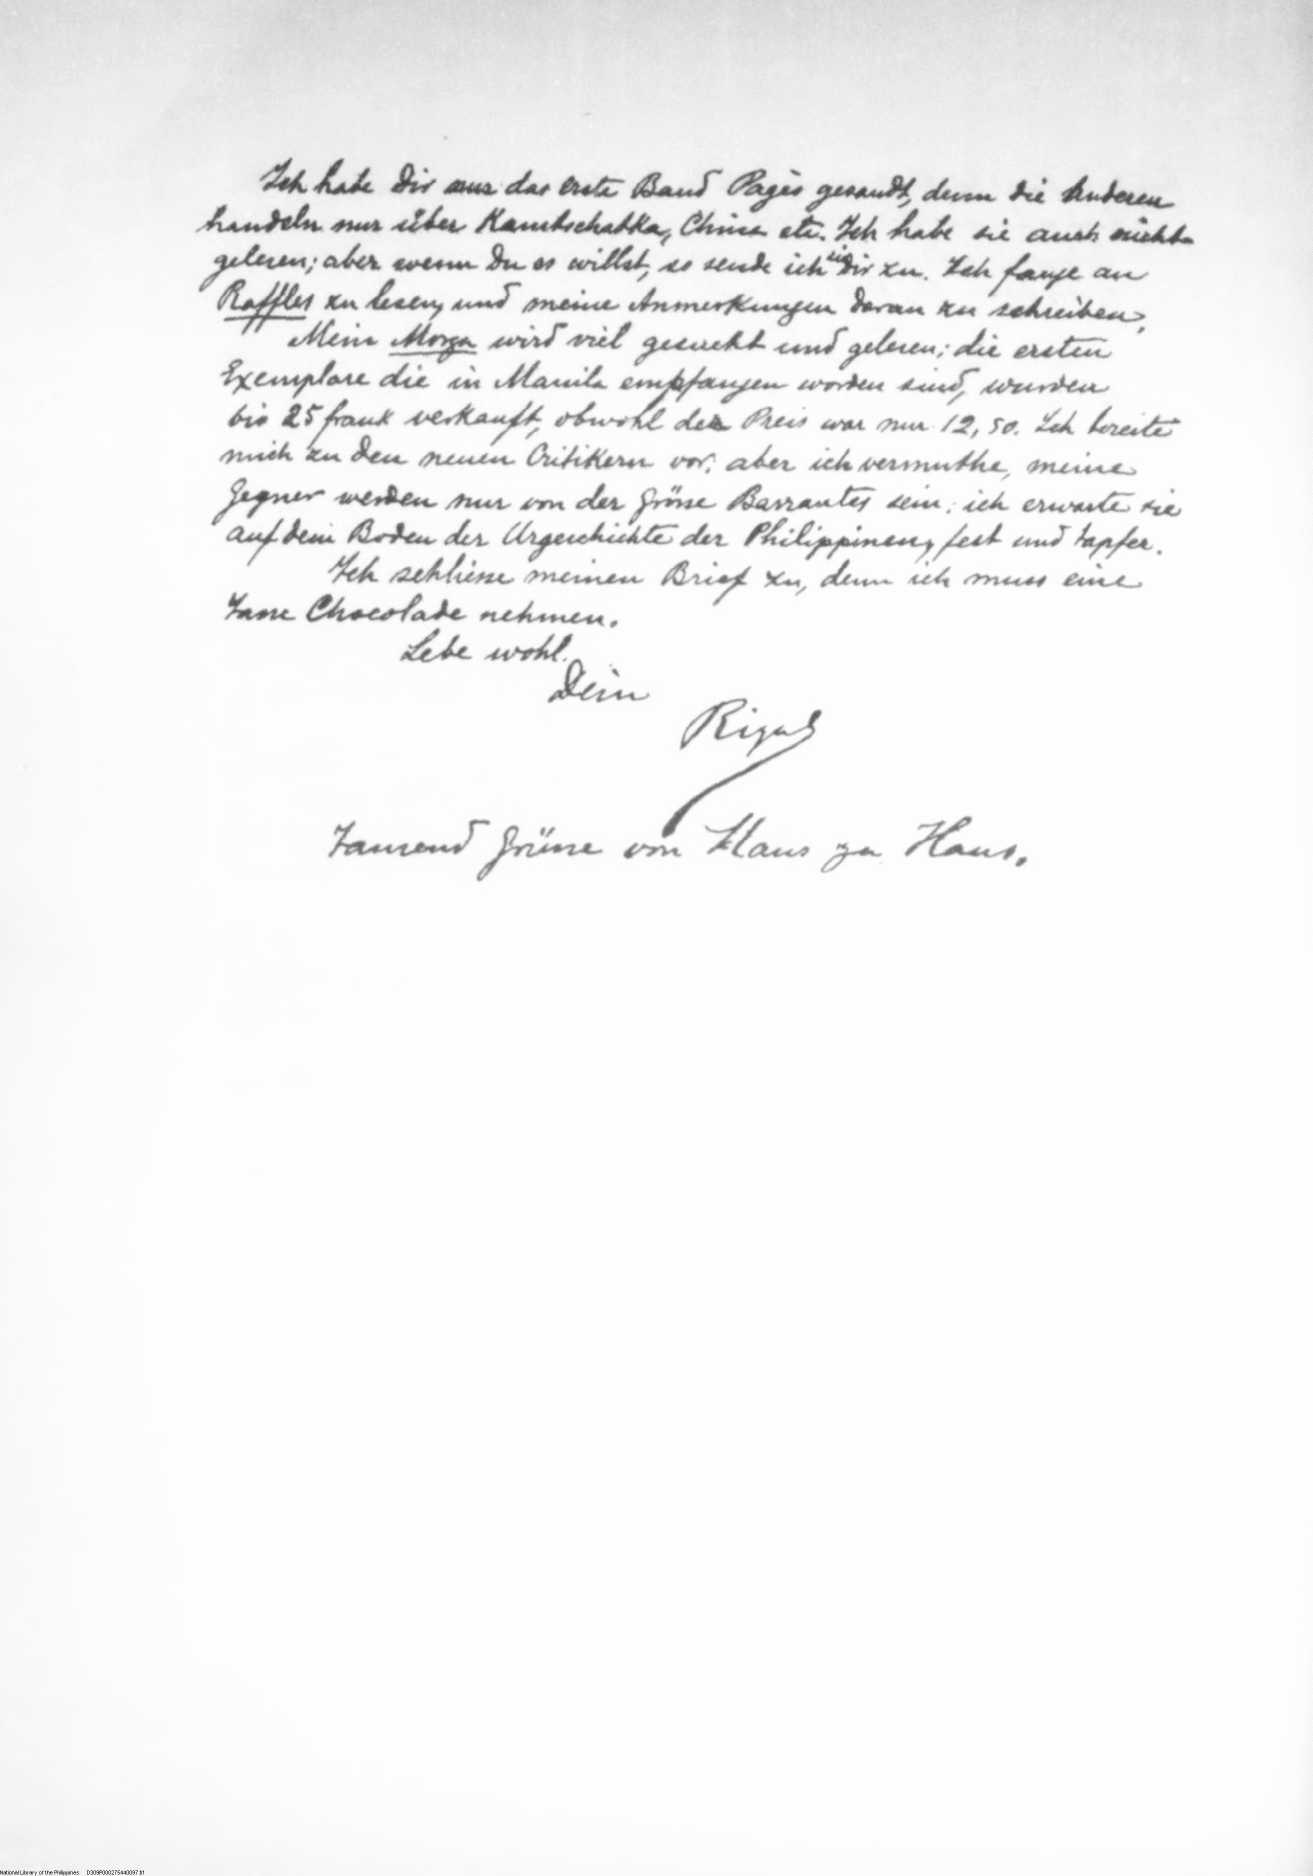 Ich habe Dir nur das erste Band Pagès gesandt, denn die Anderen
handeln nur über Kamtschatka, China etc. Ich habe sie auch nicht
gelesen; aber wenn Du es willst, so sende ich sie Dir zu. Ich fange an
Raffles zu lesen, und meine Anmerkungen daran zu schreiben.
Mein Morga wird viel gesucht und gelesen; die ersten
Exemplare die in Manila empfangen worden sind, wurden
bis 25 frank verkauft, obwohl der Preis war nur 12,50. Ich bereite
mich zu den neuen Critikern vor; aber ich vermuthe, meine
Gegner werden nur von der Grösse Barrantes sein; ich erwarte sie
auf dem Boden der Urgeschichte der Philippinen, fest und tapfer.
Ich schliesse meinen Brief zu, denn ich muss eine
Tasse Chocolade nehmen.
Lebe wohl.
Dein
Rizal
Tausend Grüsse von Haus zu Haus.
National Library of the Philippines D309P000275440097.tif